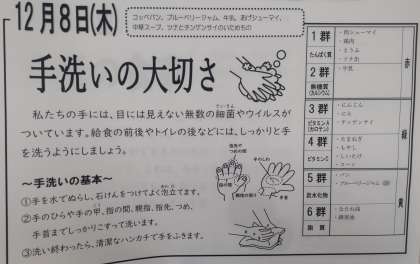 12月8日(木)
コッペパン、ブルーベリージャム、牛乳、あげシューマイ、
中華スープ、ツナとチンゲンサイのいためもの
手洗いの大切さ
私たちの手には、目には見えない無数の細菌やウイルスが
さいきん
ついています。給食の前後やトイレの後などには、しっかりと手
を洗うようにしましょう。
～手洗いの基本～
①手を水でぬらし、石けんをつけてよく泡立てます。
②手のひらや手の甲、指の間、親指、指先、つめ、
手首までしっかりこすって洗います。
③洗い終わったら、清潔なハンカチで手をふきます。
指先や
つめの間
指の間
手のしわ
手首
1群
たんぱく質
・肉シューマイ
・鶏肉
・とうふ
・ツナ缶
2群
無機質
(カルシウム)
・牛乳
3群
ビタミンA
(カロテン)
・にんじん
・にら
・チンゲンサイ
4群
ビタミンC
・たまねぎ
・もやし
・しいたけ
・コーン
5群
炭水化物
・パン
・ブルーベリージャム
6群
脂質
赤
緑
黄